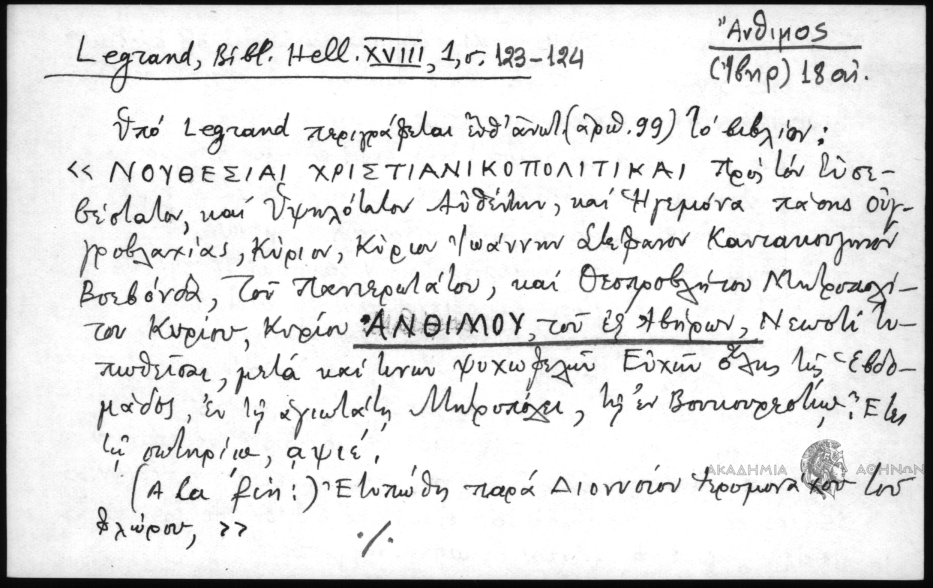 Legrand, Bibl. Hell. XVIII, 1, σ. 123-124
Ἄνθιμος
(Ἴβηρ) 18 αἰ.
Ὑπό Legrand περιγράφεται ἐνθ' ἀνωτ. (ἀριθ. 99) τό βιβλίον:
<< ΝΟΥΘΕΣΙΑΙ ΧΡΙΣΤΙΑΝΙΚΟΠΟΛΙΤΙΚΑΙ πρός τόν Εὐσε-
βέστατον, καί Ὑψηλότατον Αὐθέντην, καί Ἡγεμόνα πάσης Οὐγ-
γροβλαχίας, Κύριον, Κύριον Ἰωάννην Στέφανον Καντακουζηνόν
Βοεβόνδα, τοῦ Πανιερωτάτου, καί Θεοπροβλήτου Μητροπολί-
του Κυρίου, Κυρίου ἈΝΘΙΜΟΥ, τοῦ ἐξ Ἰβήρων, Νεωστί τυ-
πωθεῖσαι, μετά καί τινων ψυχωφελῶν Εὐχῶν ὅλης τῆς Ἑβδο-
μάδος, ἐν τῇ ἁγιωτάτῃ Μητροπόλει, τῇ ἐν Βουκουρεστίῳ, Ἔτει
τῷ σωτηρίῳ, αψιέ,
(A la fin:) Ἐτυπώθη παρά Διονυσίου ἱερομονάχου τοῦ
Φλώρου, >>
./.
ΑΚΑΔΗΜΙΑ ΑΘΗΝΩΝ